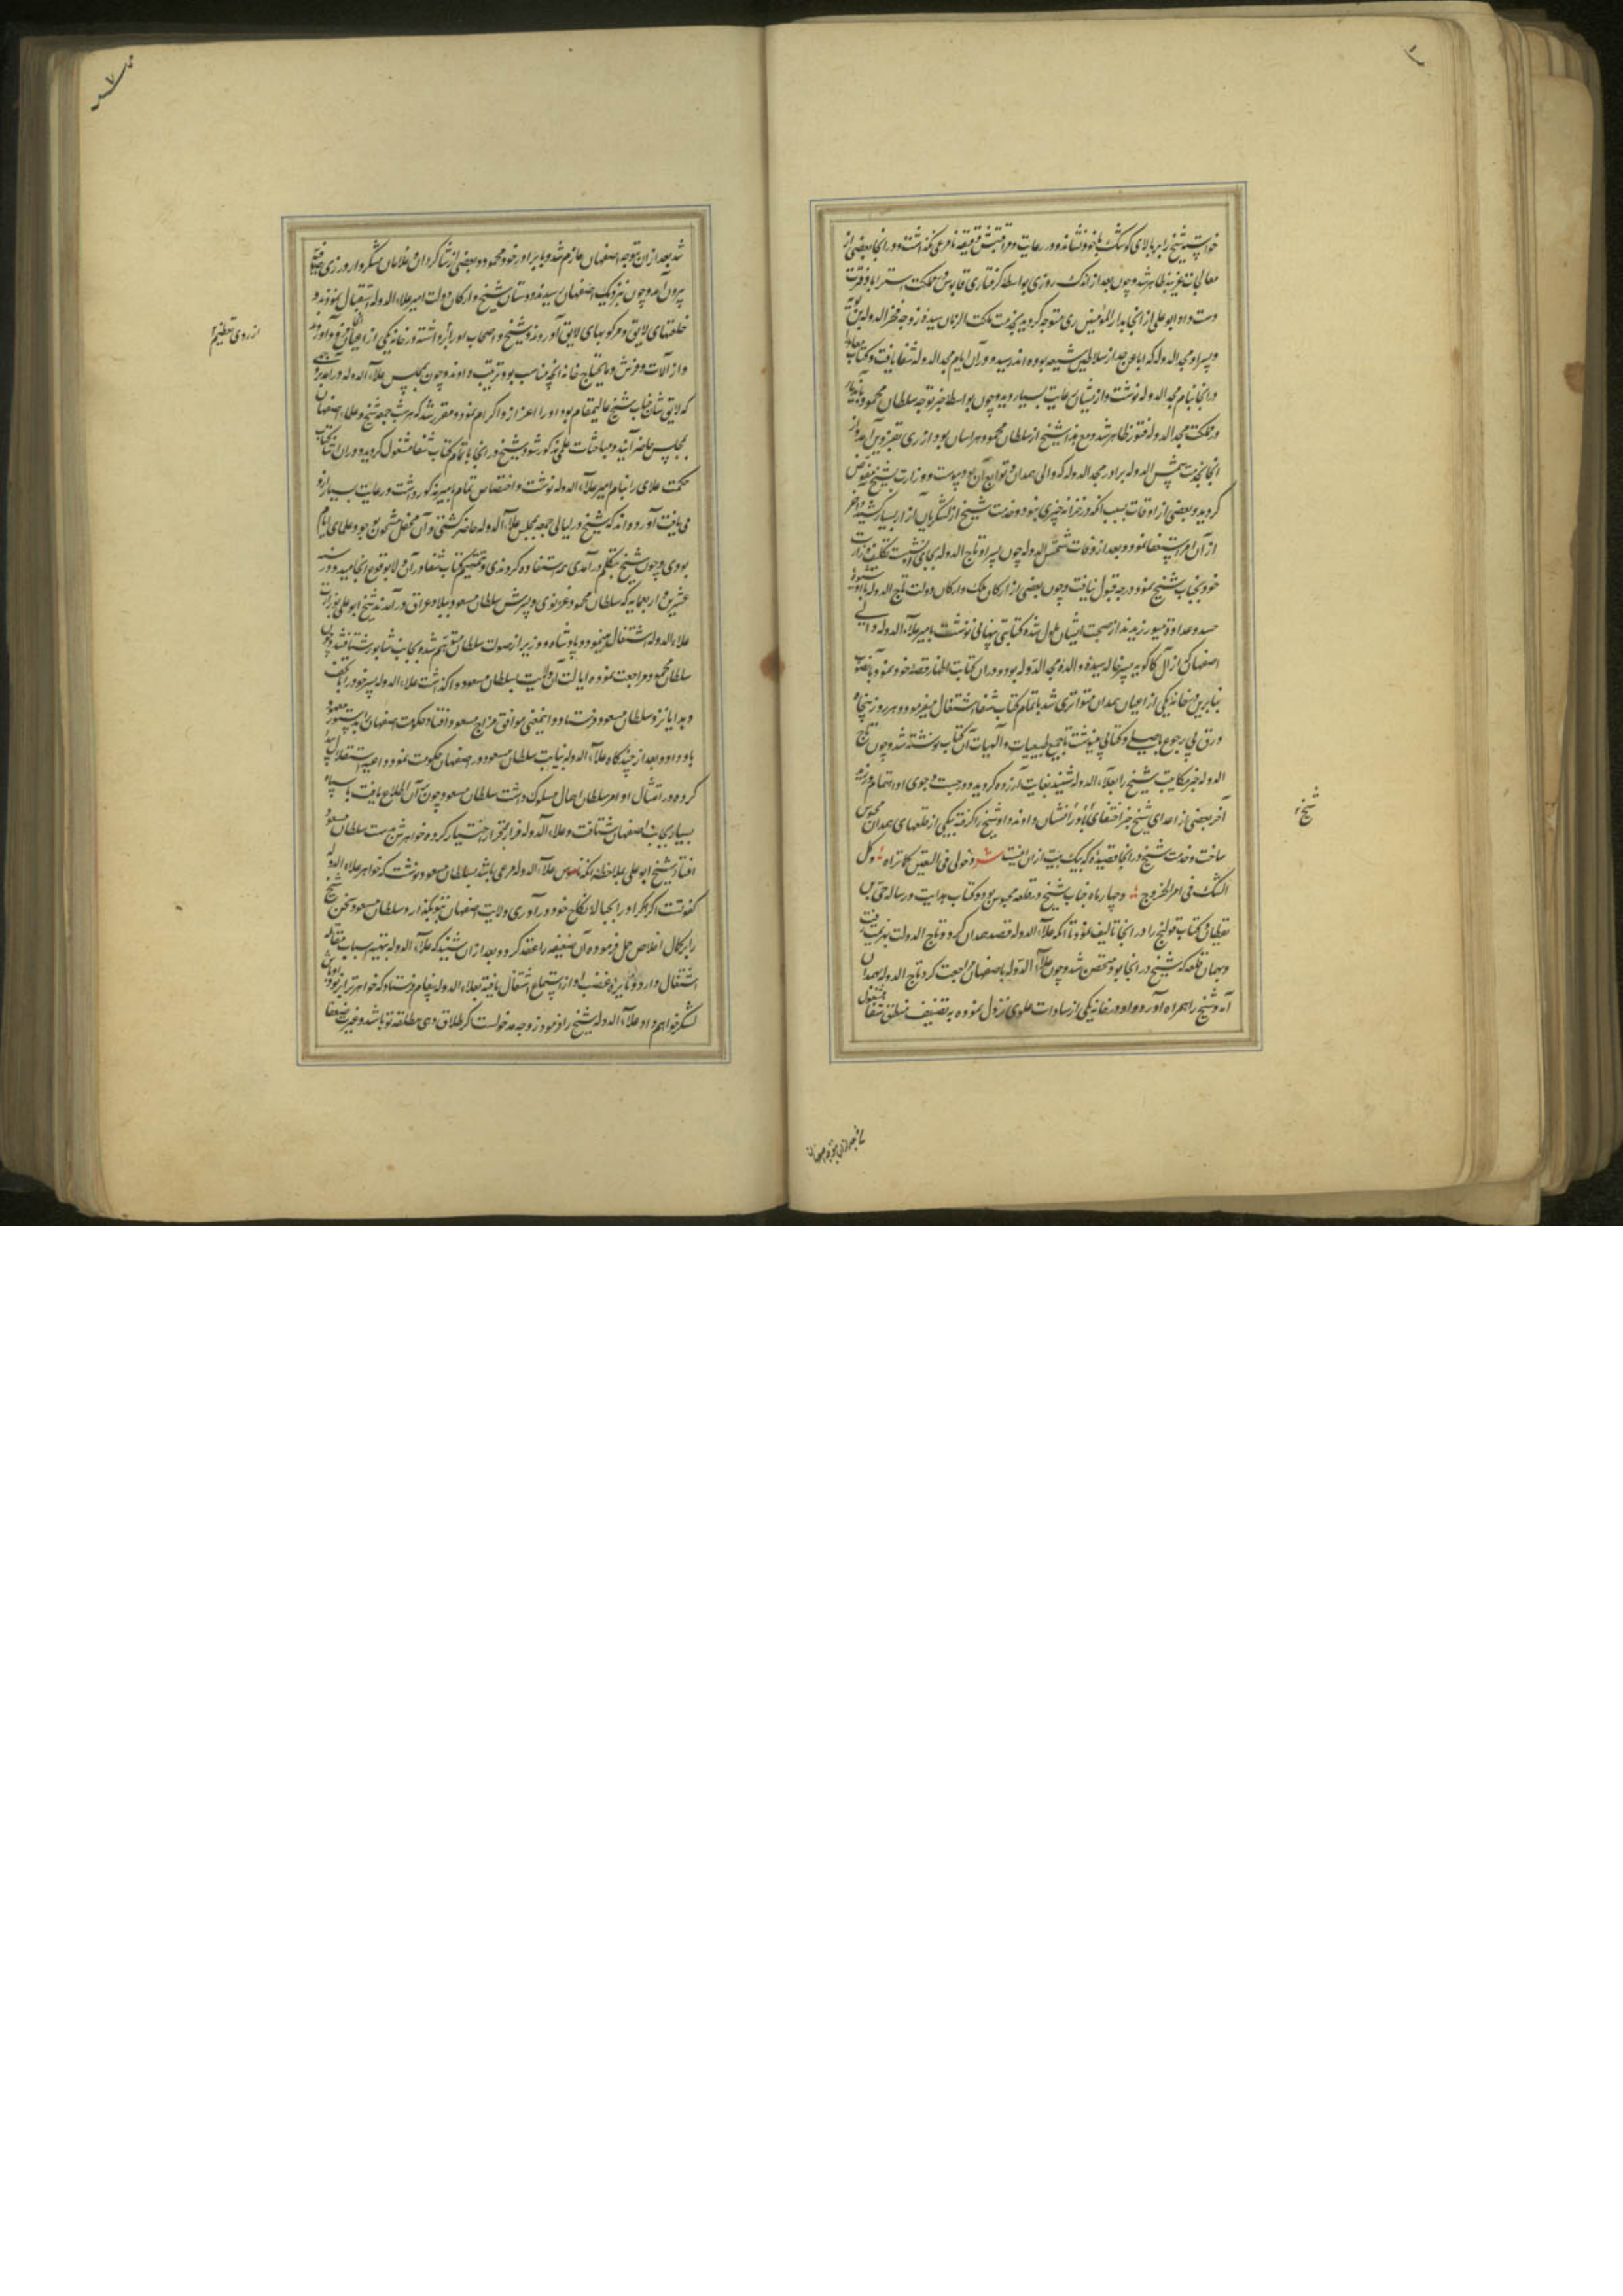 خواست شیخ را بر بالای کوشک با خود نشاند و در رعایت و مراقبتش دقیقه نامرعی نگذاشت و در آنجا بعضی از
معالجات غریبه ظاهر شد و چون بعد از اندک روزی بواسطه گرفتاری قابوس در مملکت استراباد فترت
دست داد ابو علی از آنجا بدار المؤمنین ری متوجه گردید بخدمت ملکت الزمان سیده زوجه فخر الدوله بن بویه
و پسر او مجد الدوله که ابا عن جد از سلاطین شیعه بوده اند رسید و در آن ایام مجد الدوله شفا یافت و کتاب معاد را
در آنجا بنام مجد الدوله نوشت و از ایشان رعایت بسیار دید و چون بواسطه خبر توجه سلطان محمود
در مملکت مجد الدوله فتور ظاهر شد و مع هذا شیخ از سلطان محمود هراسان بود از ری بقزوین آمد و از
آنجا بخدمت شمس الدوله برادر مجد الدوله که والی همدان و توابع آن بود پیوست و وزارت بشیخ مفوض
گردید و بعضی از اوقات بسبب آنکه در خزانه چیزی نبود و خدمت شیخ از لشکریان آزار بسیار کشید و آخر
از آن امر استعفا نمود و بعد از وفات شمس الدوله چون پسر او تاج الدوله بجای او نشست تکلیف وزارت
خود بجناب شیخ نمود درجه قبول نیافت و چون بعضی از ارکان ملک و ارکان دولت تاج الدوله با او شیوه
حسد و عداوة میورزیدند از صحبت ایشان ملول شده کتابتی پنهانی نوشت بامیر علاء الدوله والی
اصفهان که از آل کاکویه پسر خاله سیده والدهٔ مجد الدوله بود و در آن کتابت اظهار قصه خود نمود
بنابرین در خانه یکی از اعیان همدان متواری شد باتمام کتاب شفا اشتغال میفرمود و هر روز پنجاه
ورق بی رجوع باصلی و کتابی مینوشت تا جمیع طبیعیات و الهیات آن کتاب نوشته شد و چون تاج
الدوله خبر مکاتبت شیخ را بعلاء الدوله شنید بغایت آزرده گردید و در جست و جوی او اهتمام ورزید
آخر بعضی از اعدای شیخ خبر اختفای او را نشان دادند و او شیخ را گرفته بیکی از قلعهای همدان محبوس
ساخت و خدمت شیخ در آنجا قصیده که یک بیت از آن اینست شعر دخولی فی الیقین کما تراه و کل
الشک فی امر الخروج و چهار ماه جناب شیخ در قلعه محبوس بود و کتاب هدایت و رساله حی بن
یقظان و کتاب قولنج را در آنجا تالیف نمود تا آنکه علاء الدوله قصد همدان کرد و تاج الدولت بهزیمت رفت
و بهمان قلعه که شیخ در آنجا بود متحصن شد و چون علاء الدوله باصفهان مراجعت کرد تاج الدوله بهمدان
آمد و شیخ را همراه آورد و او در خانه یکی از سادات علوی نزول نموده بتصنیف منطق شفا مشغول
شیخ
شد بعد از آن متوجه اصفهان
شد بعد از آن بتوجه اصفهان عازم شد و با برادر خود محمود و بعضی از شاگردان و غلامان متنکروار در زی صوفیه
بیرون آمد و چون بنزدیک اصفهان رسیدند دوستان شیخ و ارکان دولت امیر علاء الدوله استقبال نمودند و
خلعتهای لایق و مرکوبهای لایق آوردند و شیخ و اصحاب او را برداشته در خانه یکی از اعیان فرود آوردند
و از آلات و فرش و مایحتاج خانه آنچه مناسب بود ترتیب دادند و چون بمجلس علاء الدوله درآمد بروجهی
که لایق شان جناب شیخ عالیمقام بود او را اعزاز و اکرام نمود و مقرر شد که هر شب جمعه شیخ و علماء اصفهان
بمجلس حاضر آیند و مباحثات علمی مذکور شود و شیخ در آنجا باتمام کتاب شفا مشغول گردید و در آن اثنا کتاب
حکمت علائی را بنام امیر علاء الدوله نوشت و اختصاص تمام بامیر مذکور داشت و رعایت بسیار از او
می یافت آورده اند که شیخ در لیالی جمعه بمجلس علاء الدوله حاضر گشتی و آن محفل مشحون بوجود علمای انام
بودی و چون شیخ بتکلم درآمدی همه استفاده کردندی و تتمیم کتاب شفا در آن ولا بوقوع انجامید و در سنه
عشرین و اربعمایه که سلطان محمود غزنوی و پسرش سلطان مسعود ببلاد عراق درآمدند شیخ ابو علی بوزارت
علاء الدوله اشتغال مینمود و پادشاه و وزیر از صولت سلطان متوهم شده بجانب شابور شتافتند و چون
سلطان محمود مراجعت نموده ایالت آن ولایت بسلطان مسعود واگذاشت علاء الدوله پسر خود را با تحف
و هدایا نزد سلطان مسعود فرستاد و اینمعنی موافق مزاج مسعود افتاد حکومت اصفهان را بدستور معهود
باو داد و بعد از چندگاه علاء الدوله بنیابت سلطان مسعود در اصفهان حکومت نمود داعیه استقلال پیدا
کرده در امتثال اوامر سلطان اهمال مسلوک داشت سلطان مسعود چون بر آن اطلاع یافت با سپاه
بسیار بجانب اصفهان شتافت و علاء الدوله فرار بر قرار اختیار کرده خواهرش بدست سلطان مسعود
افتاد شیخ ابو علی بملاحظه آنکه ناموس علاء الدوله مرعی باشد بسلطان مسعود نوشت که خواهر علاء الدوله
کفو تست اگر او را بحبالهٔ نکاح خود درآوری ولایت اصفهان بتو بگذارد و سلطان مسعود سخن شیخ
را بر کمال اخلاص حمل فرموده آن ضعیفه را عقد کرد و بعد از آن شنید که علاء الدوله بتهیه اسباب مقاتله
اشتغال دارد و نایره غضب او از استماع اشتعال یافته بعلاء الدوله پیغام فرستاد که خواهرترا بزنود و اوباش
لشکر خواهم داد علاء الدوله شیخ را فرمود
از روی تعظیم